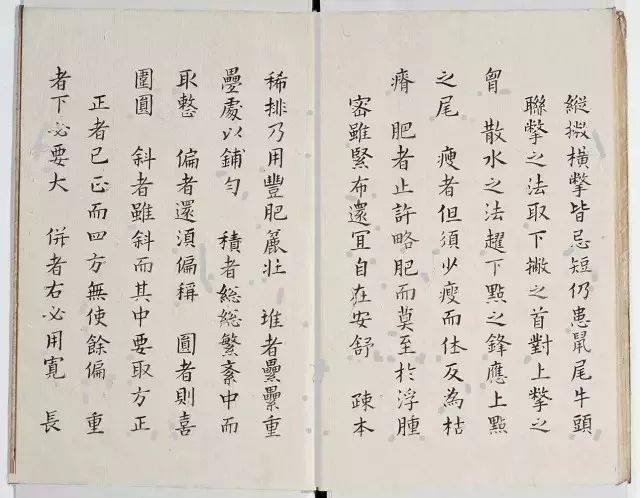 縱撇橫撆皆忌短仍患鼠尾牛頭
聯撆之法取下撇之首對上撆之
胷 散水之法趯下點之鋒應上點
之尾 瘦者但須少瘦而体反為枯
瘠 肥者止許略肥而莫至於浮腫
密雖緊布還宜自在安舒 疎本
稀排乃用豐肥麄壯 堆者纍纍重
疊處以鋪勻 積者総総繁紊中而
取整 偏者還須偏稱 圓者則喜
圍圓 斜者雖斜而其中要取方正
正者已正而四方無使餘偏 重
者下必要大 併者右必用寬 長